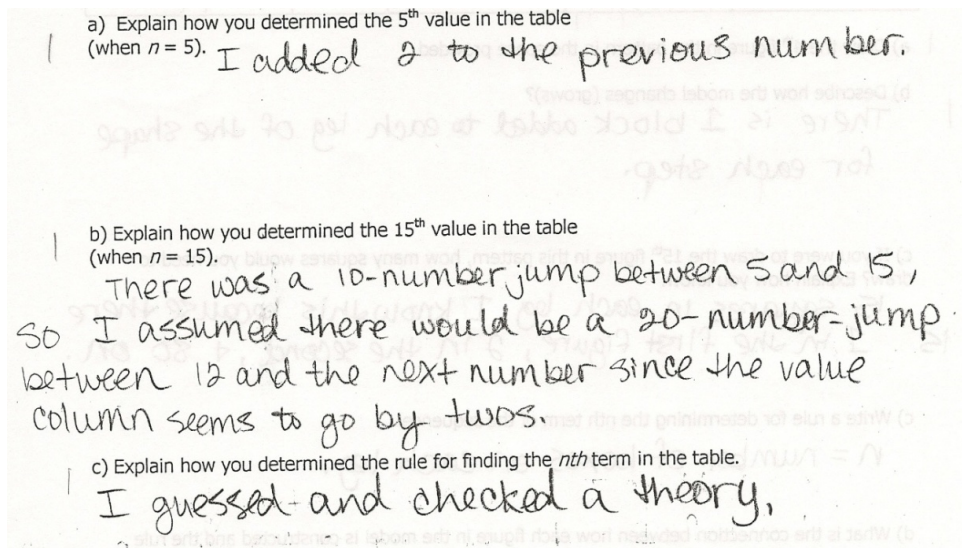 a) Explain how you determined the 5th value in the table
| (when n = 5). I added 2 to the previous number.
b) Explain how you determined the 15th value in the table
| (when n = 15).
There was a 10-number jump between 5 and 15,
so I assumed there would be a 20-number-jump
between 12 and the next number since the value
column seems to go by twos.
| c) Explain how you determined the rule for finding the nth term in the table.
I guessed and checked a theory.